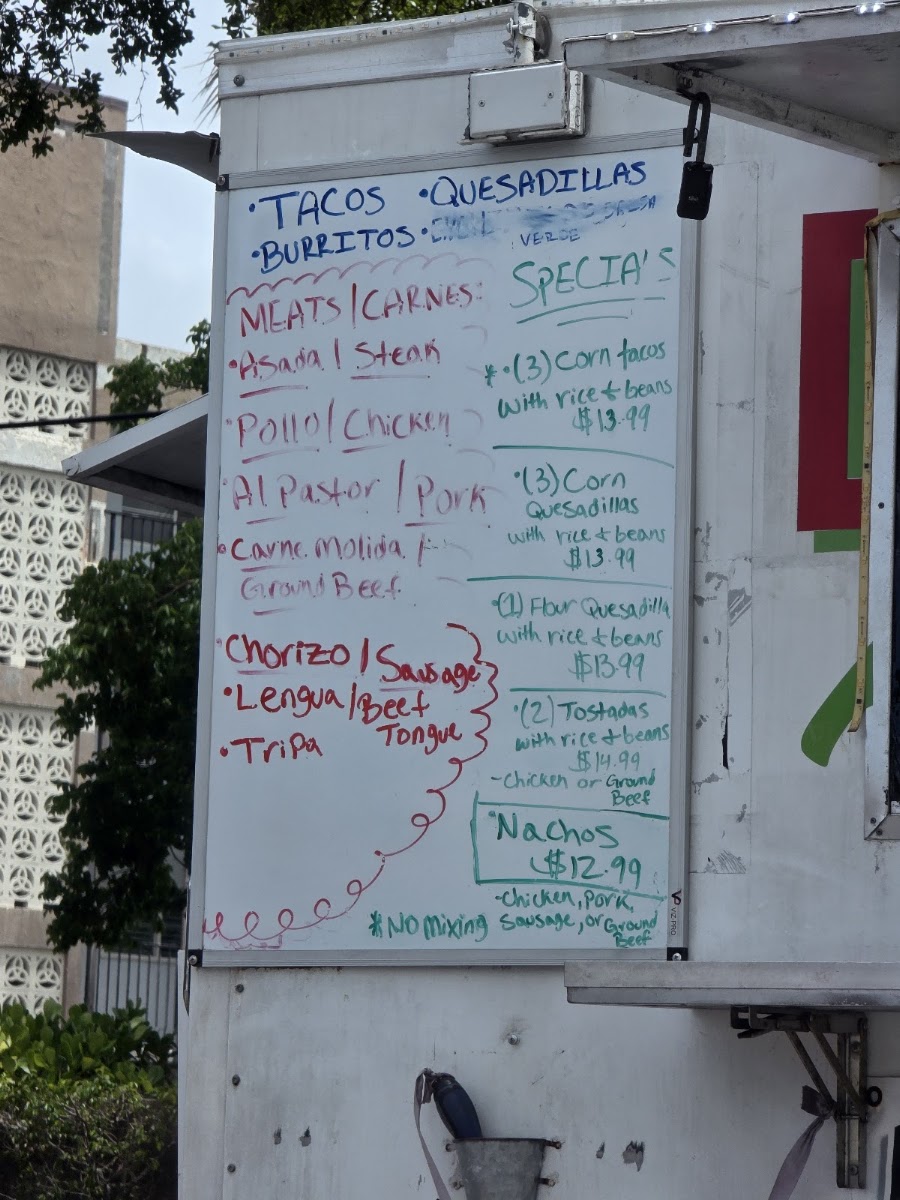 •TACOS •QUESADILLAS
•BURRITOS •
VERDE
MEATS/CARNES:
•Asada / Steak
Pollo / Chicken
Al Pastor / Pork
•Carne Molida /
Ground Beef
Chorizo / Sausage
•Lengua / Beef
Tongue
•Tripa
SPECIA'S
*•(3) Corn tacos
with rice + beans
$13.99
•(3) Corn
Quesadillas
with rice + beans
$13.99
•(1) Flour Quesadilla
with rice + beans
$13.99
•(2) Tostadas
with rice + beans
$14.99
-Chicken or Ground
Beef
•Nachos
$12.99
-Chicken, Pork,
Sausage, or Ground
Beef
*No Mixing
VIZ-PRO